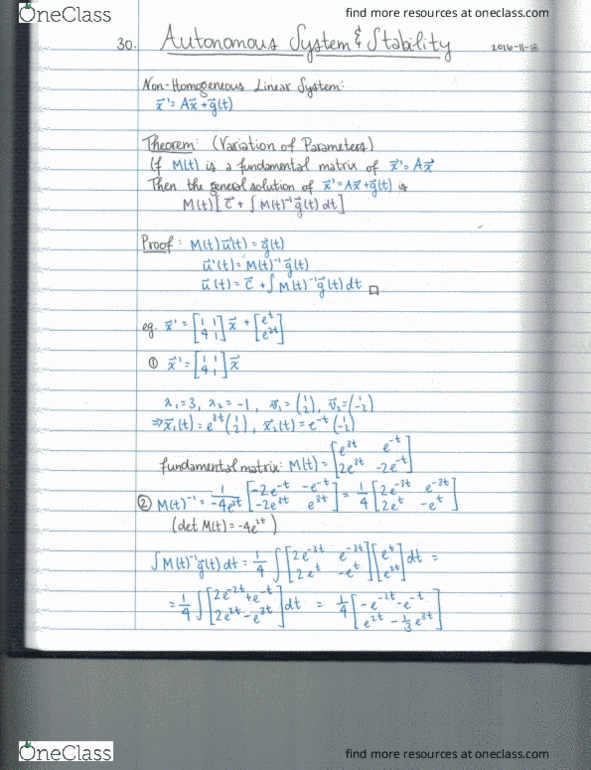 OneClass
find more resources at oneclass.com
30. Autonomous System & Stability 2016-11-18
Non-Homogeneous Linear System:
x⃗' = Ax⃗ + g⃗(t)
Theorem: (Variation of Parameters)
If M(t) is a fundamental matrix of x⃗' = Ax⃗
Then the general solution of x⃗' = Ax⃗ + g⃗(t) is
M(t)[c⃗ + ∫M(t)⁻¹g⃗(t)dt]
Proof: M(t)u⃗'(t) = g⃗(t)
u⃗'(t) = M(t)⁻¹g⃗(t)
u⃗(t) = c⃗ + ∫M(t)⁻¹g⃗(t)dt □
eg. x⃗' = [1 1; 4 1] x⃗ + [eᵗ; e²ᵗ]
① x⃗' = [1 1; 4 1] x⃗
λ₁=3, λ₂=-1, v⃗₁=(1; 2), v⃗₂=(1; -2)
⇒ x⃗₁(t) = e³ᵗ(1; 2), x⃗₂(t) = e⁻ᵗ(1; -2)
fundamental matrix: M(t) = [e³ᵗ e⁻ᵗ; 2e³ᵗ -2e⁻ᵗ]
② M(t)⁻¹ = 1/-4e²ᵗ [-2e⁻ᵗ -e⁻ᵗ; -2e³ᵗ e³ᵗ] = 1/4 [2e⁻³ᵗ e⁻³ᵗ; 2eᵗ -eᵗ]
(det M(t) = -4e²ᵗ)
∫M(t)⁻¹g⃗(t)dt = 1/4 ∫[2e⁻³ᵗ e⁻³ᵗ; 2eᵗ -eᵗ][eᵗ; e²ᵗ]dt =
= 1/4 ∫[2e⁻²ᵗ+e⁻ᵗ; 2e²ᵗ-e³ᵗ]dt = 1/4 [-e⁻²ᵗ-e⁻ᵗ; e²ᵗ-1/3e³ᵗ]
OneClass
find more resources at oneclass.com